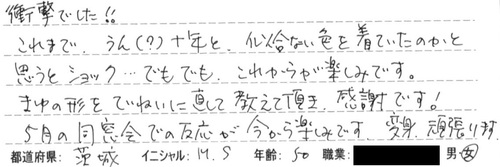 衝撃でした!!
これまで、うん(?)十年と、似合ない色を着ていたのかと
思うとショック…でもでも、これからが楽しみです。
まゆの形をていねいに直して教えて頂き、感謝です!
5月の同窓会での反応が今から楽しみです、変身、頑張ります
都道府県: 茨城 イニシャル: M.S 年齢: 50 職業: 男・女